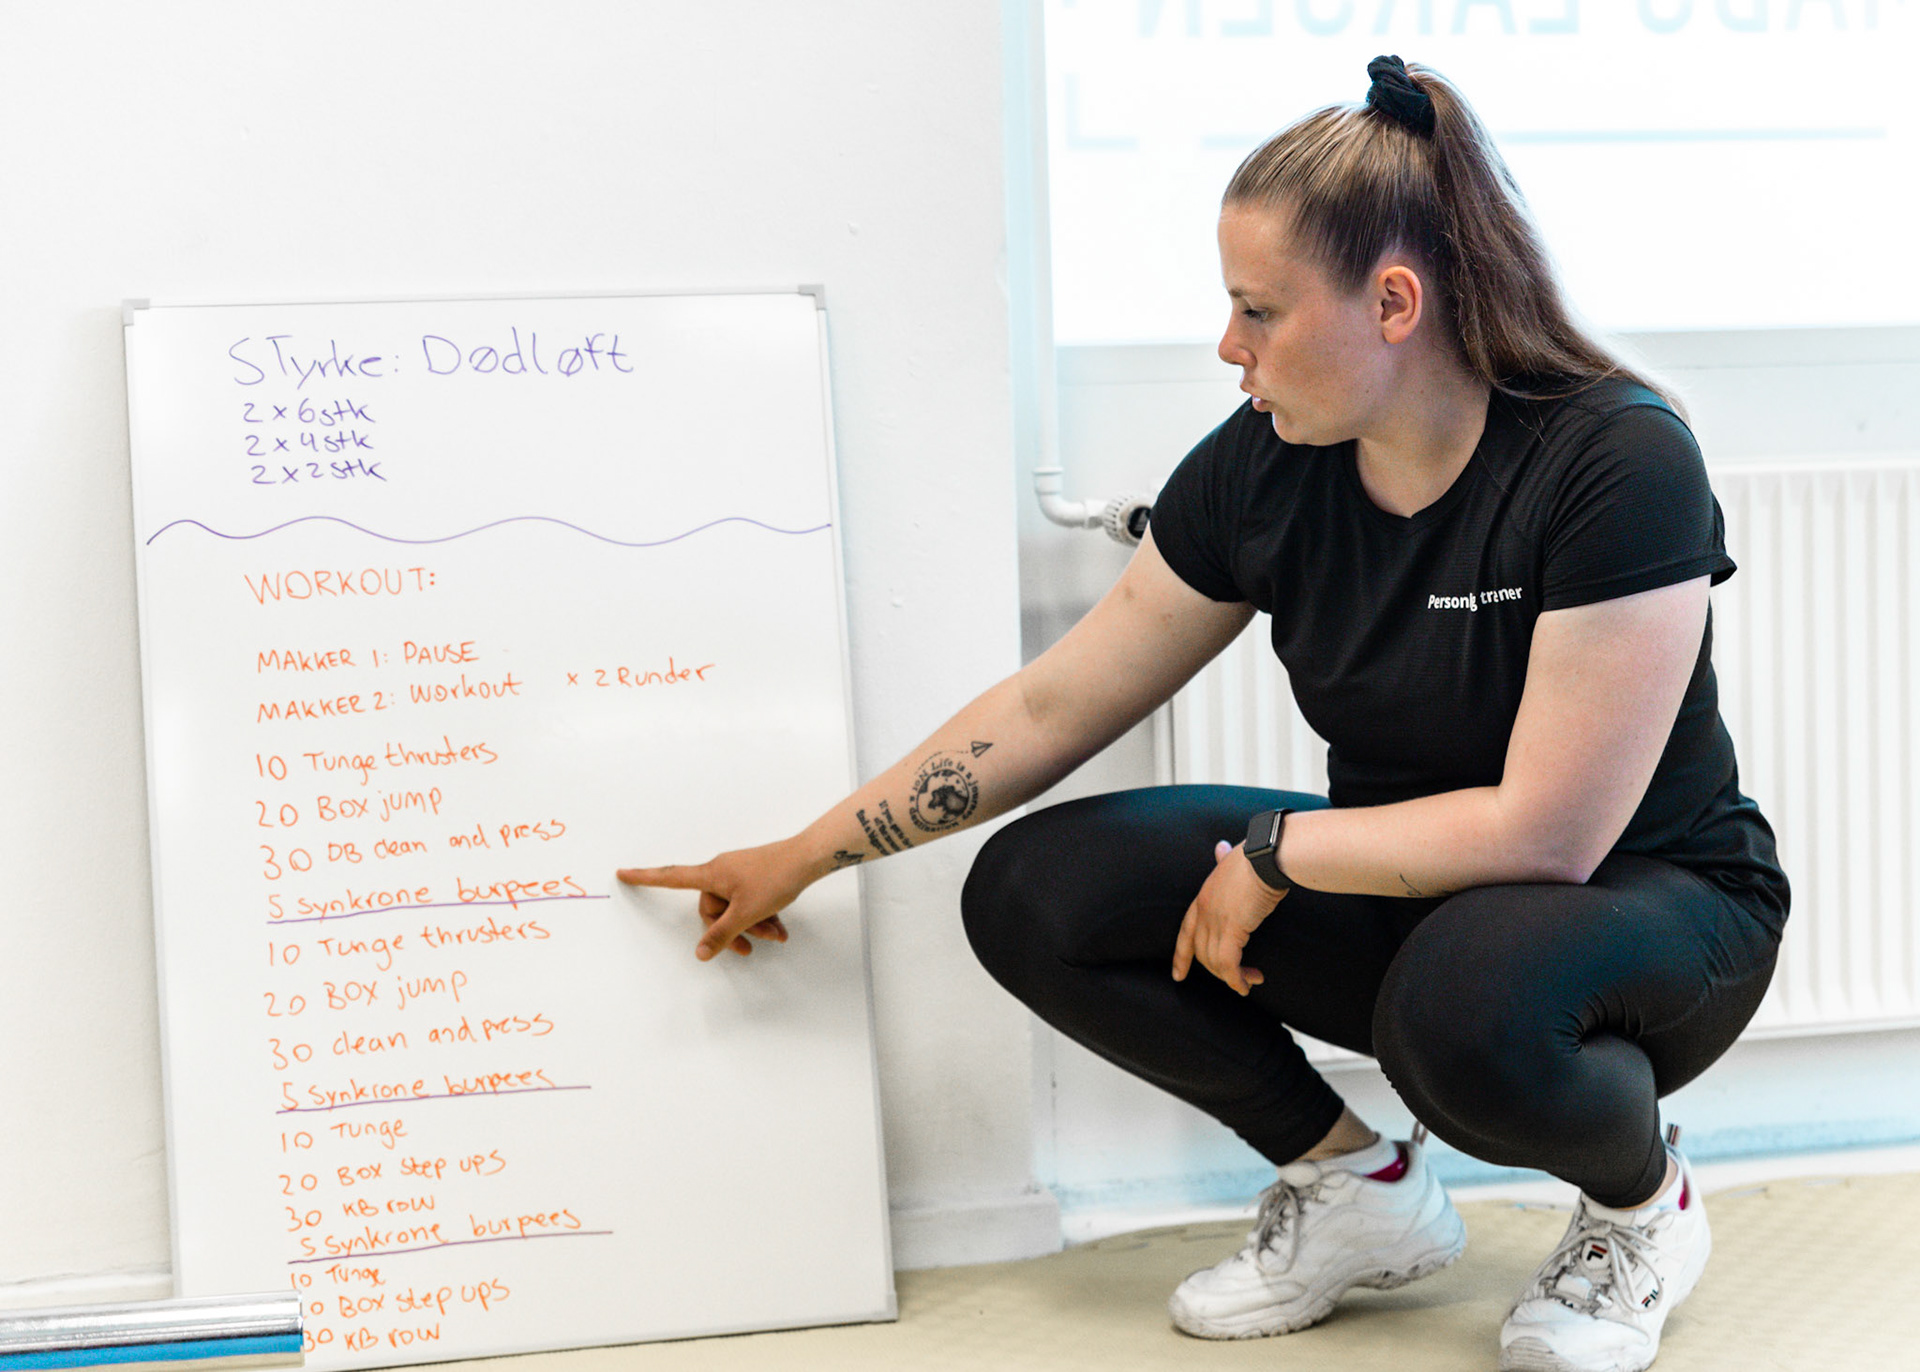 STyrke: Dødløft
2 x 6 stk
2 x 4 stk
2 x 2 stk
WORKOUT:
MAKKER 1: PAUSE
MAKKER 2: Workout x 2 Runder
10 Tunge thrusters
20 Box jump
30 DB clean and press
5 synkrone burpees
10 Tunge thrusters
20 BOX jump
30 clean and press
5 synkrone burpees
10 Tunge
20 Box step ups
30 KB row
5 synkrone burpees
10 Tunge
0 Box step ups
30 KB row
Personlig træner
Life is a journey
not a destination
FILA